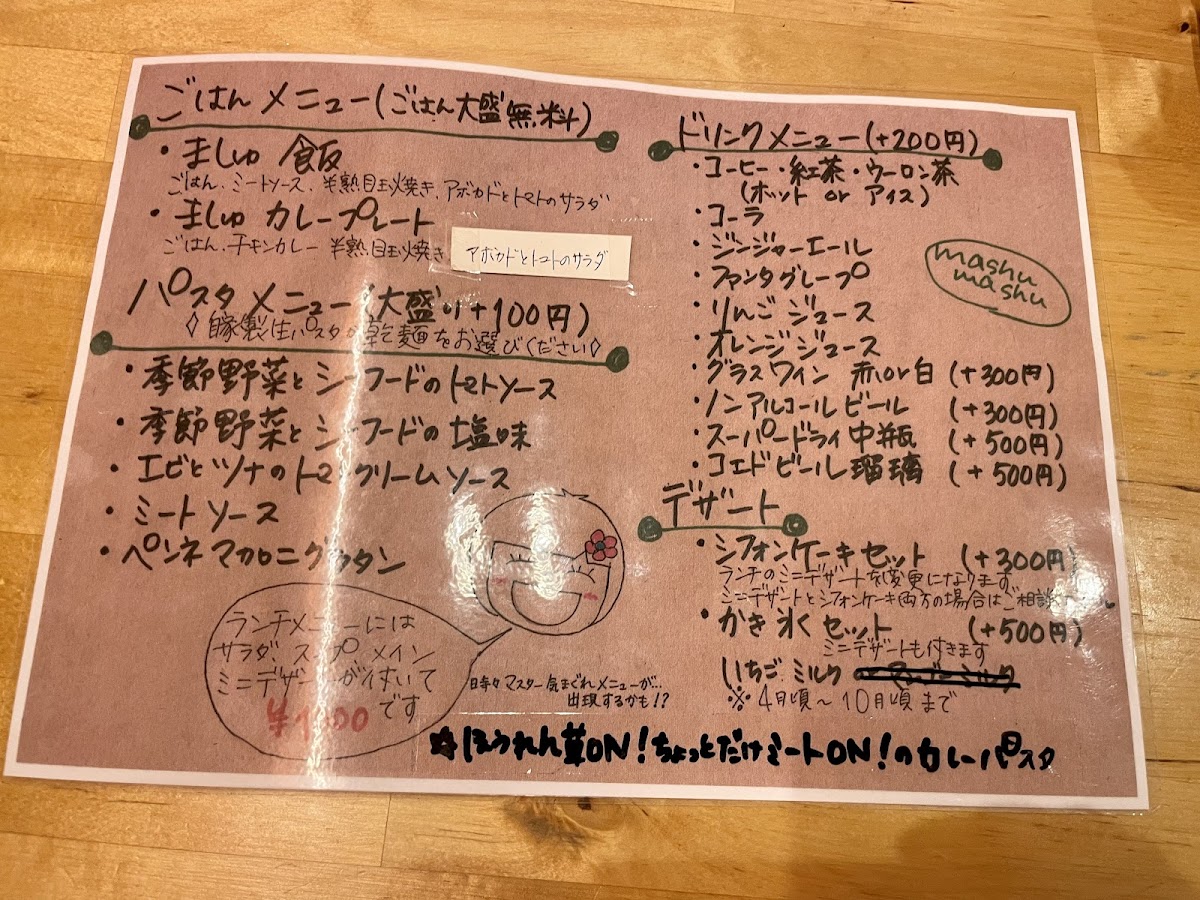 ごはんメニュー(ごはん大盛無料)
・ましゅ飯
ごはん、ミートソース、半熟目玉焼き、アボカドとトマトのサラダ
・ましゅカレープレート
ごはん、チキンカレー 半熟目玉焼き
アボカドとトマトのサラダ
パスタメニュー(大盛り+100円)
◇自家製生パスタか乾麺をお選びください◇
・季節野菜とシーフードのトマトソース
・季節野菜とシーフードの塩味
・エビとツナのトマトクリームソース
・ミートソース
・ペンネマカロニグラタン
ランチメニューには
サラダ、スープ、メイン
ミニデザートが付いて
です
時々マスター気まぐれメニューが…
出現するかも!?
ドリンクメニュー(+200円)
・コーヒー・紅茶・ウーロン茶
(ホット or アイス)
・コーラ
・ジンジャーエール
・ファンタグレープ
・りんごジュース
・オレンジジュース
・グラスワイン 赤or白 (+300円)
・ノンアルコールビール (+300円)
・スーパードライ中瓶 (+500円)
・コエドビール瑠璃 (+500円)
mashu
mashu
デザート
・シフォンケーキセット (+300円)
ランチのミニデザートを変更になります
ミニデザートとシフォンケーキ両方の場合はご相談
・かき氷セット (+500円)
ミニデザートも付きます
いちごミルク
※4月頃〜10月頃まで
★ほうれん草ON!ちょっとだけミートON!のカレーパスタ